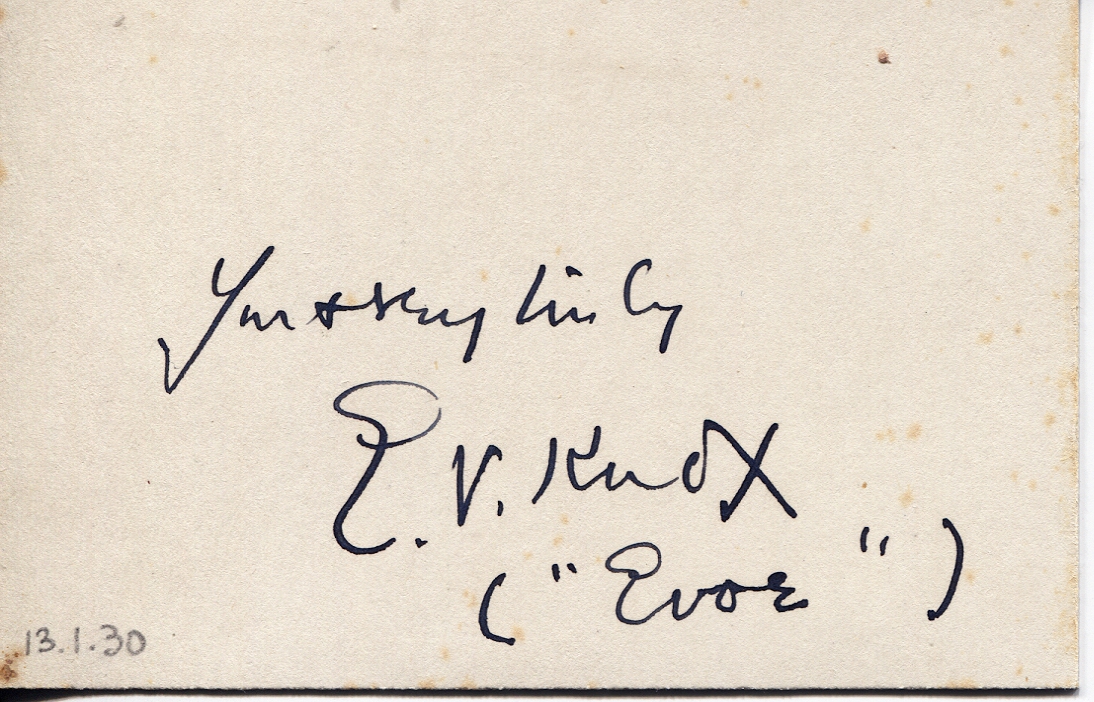 Yours very truly
E. V. Knox
("Evoe")
13.1.30